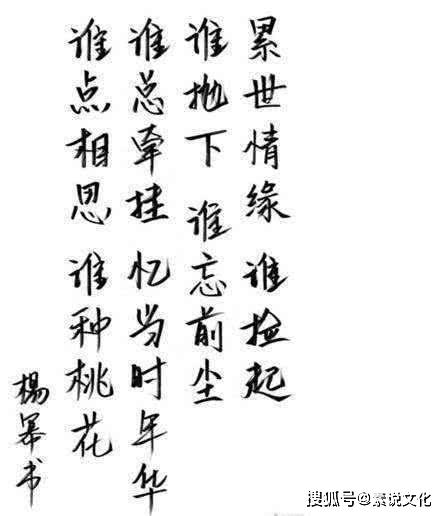 累世情缘 谁捡起
谁抛下 谁忘前尘
谁总牵挂 忆当时年华
谁点相思 谁种桃花
楊幂书
搜狐号@素说文化